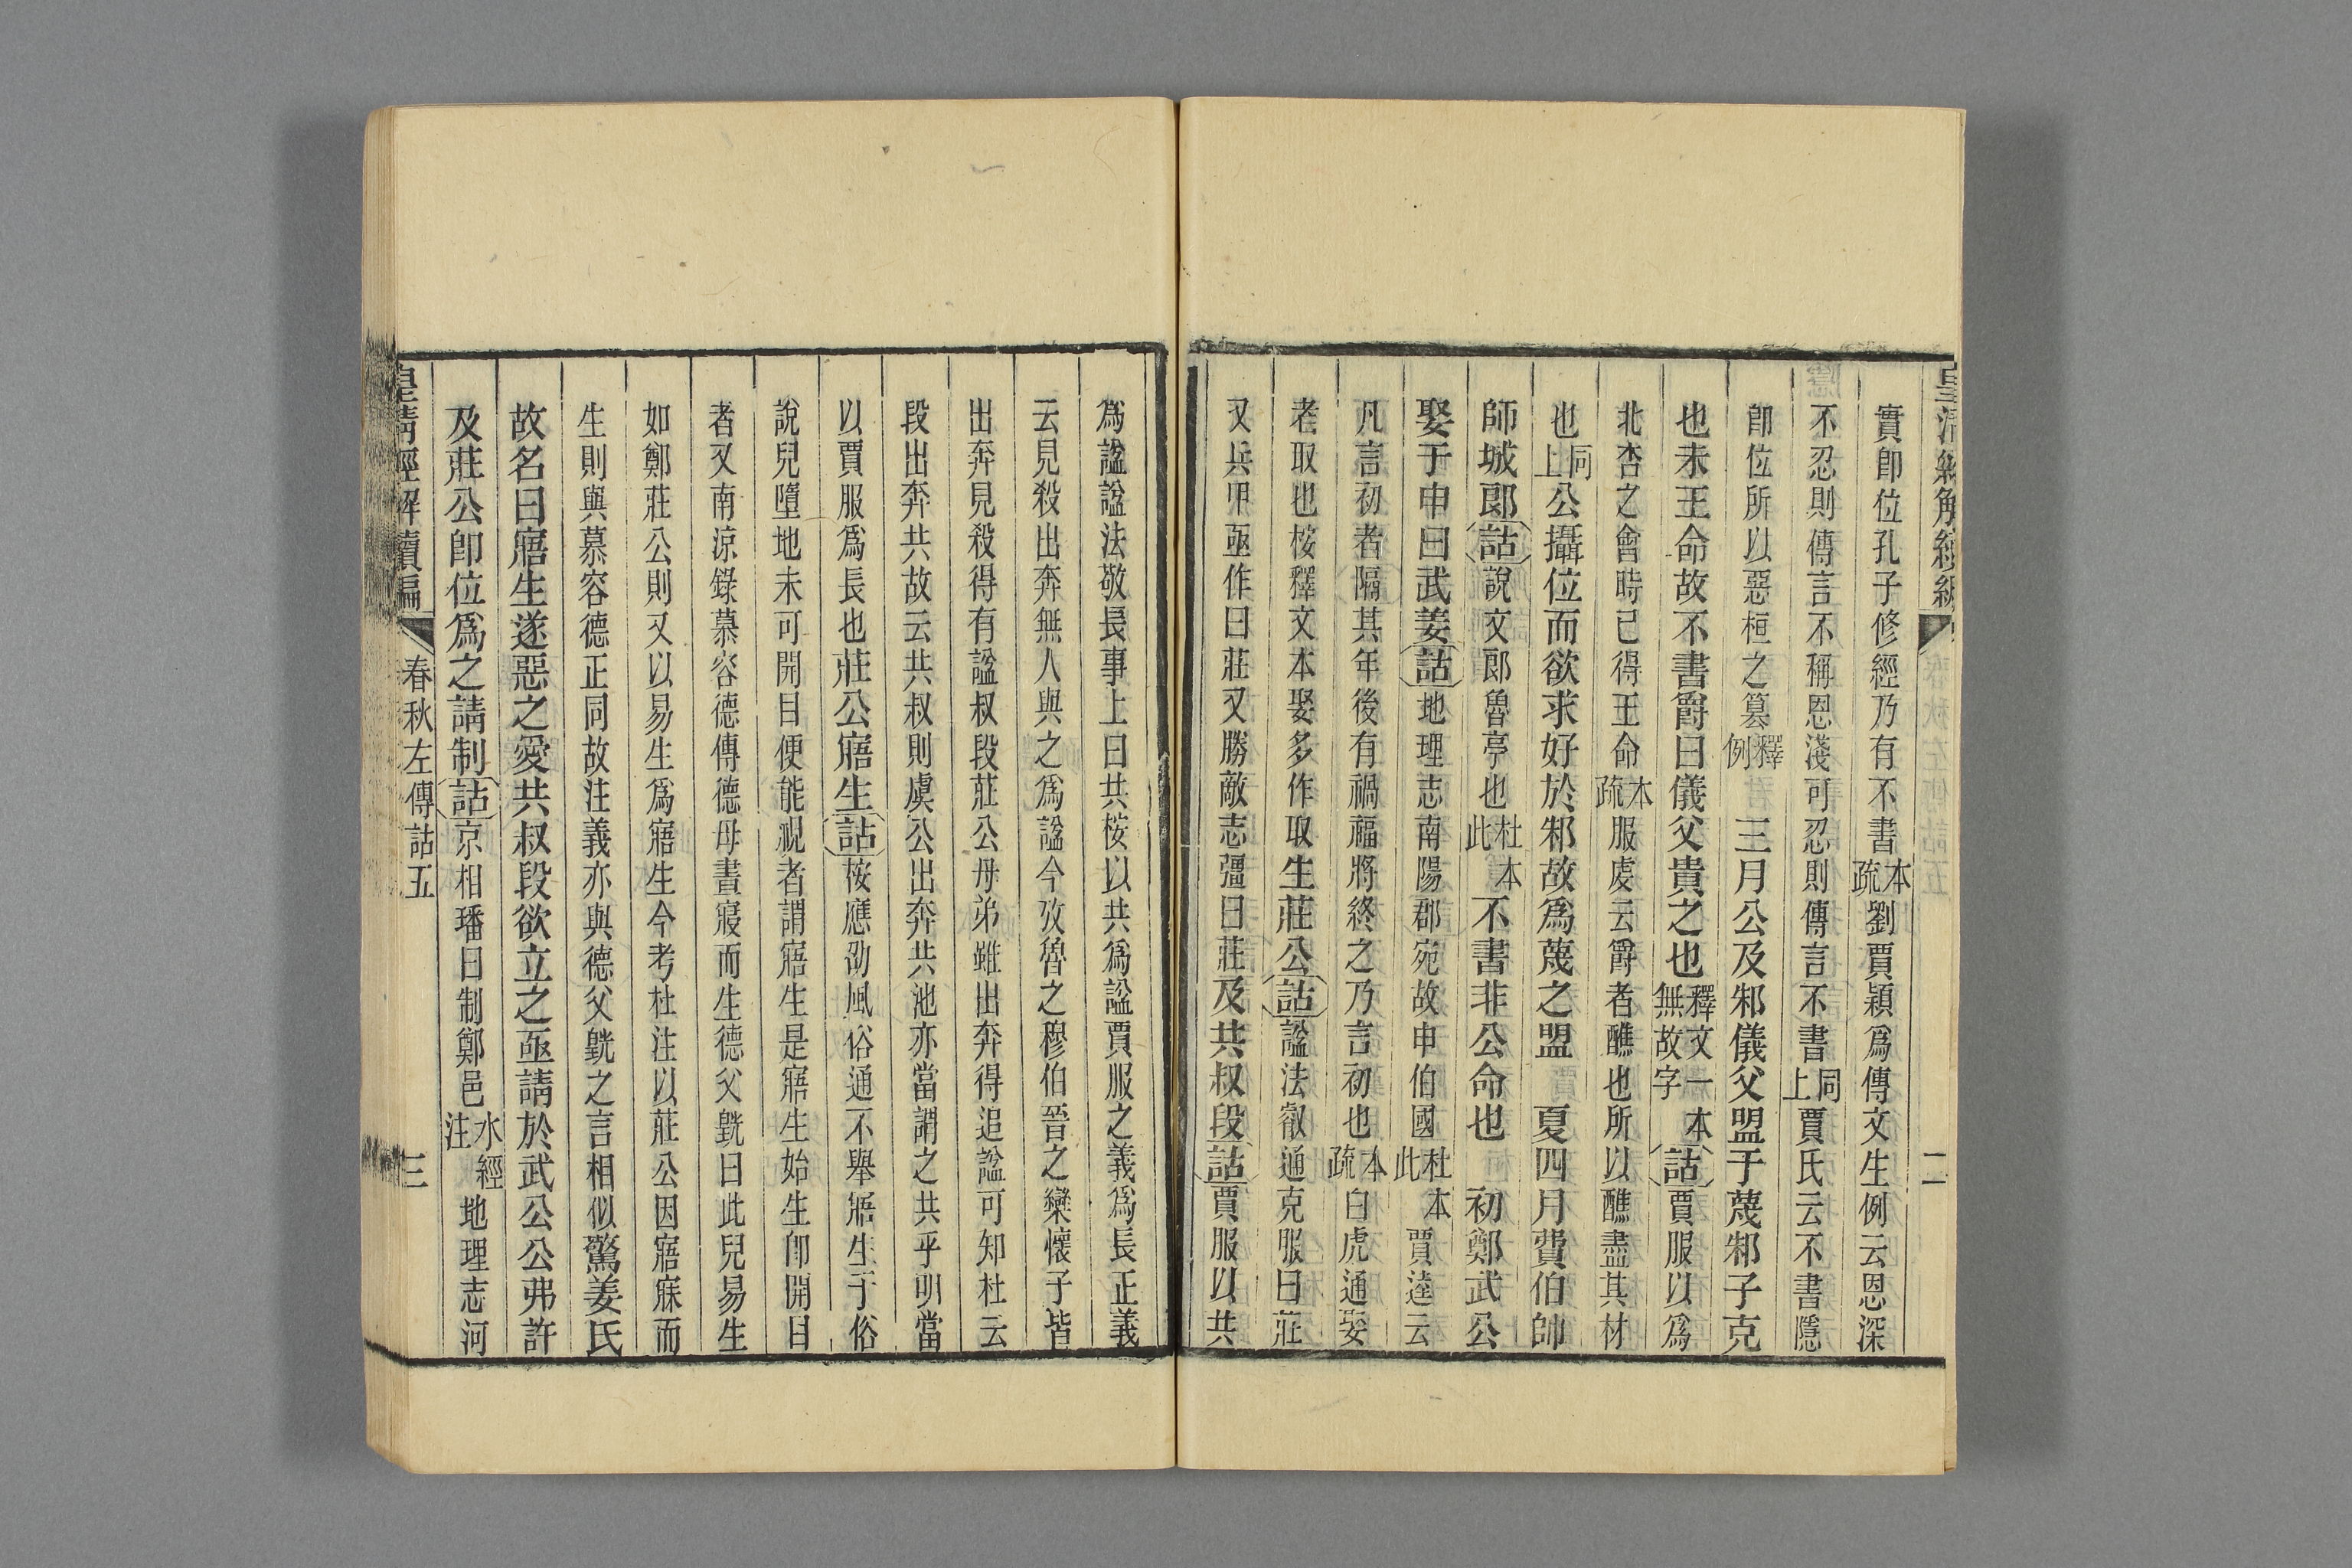 皇清經解續編
二
實卽位孔子修經乃有不書本疏劉賈穎爲傳文生例云恩深
不忍則傳言不稱恩淺可忍則傳言不書同上賈氏云不書隱
卽位所以惡桓之篡釋例三月公及邾儀父盟于蔑邾子克
也未王命故不書爵曰儀父貴之也釋文一本無故字詁賈服以爲
北杏之會時已得王命本疏服虔云爵者醮也所以醮盡其材
也同上公攝位而欲求好於邾故爲蔑之盟 夏四月費伯帥
師城郞詁說文郞魯亭也杜本此不書非公命也 初鄭武公
娶于申曰武姜詁地理志南陽郡宛故申伯國杜本此賈逵云
凡言初者隔其年後有禍福將終之乃言初也本疏白虎通娶
者取也桉釋文本娶多作取生莊公詁諡法叡通克服曰莊
又兵甲亟作曰莊又勝敵志彊曰莊及共叔段詁賈服以共
爲諡諡法敬長事上曰共桉以共爲諡賈服之義爲長正義
云見殺出奔無人與之爲諡今攷魯之穆伯晉之欒懷子皆
出奔見殺得有諡叔段莊公母弟雖出奔得追諡可知杜云
段出奔共故云共叔則虞公出奔共池亦當謂之共乎明當
以賈服爲長也莊公寤生詁桉應劭風俗通不舉寤生于俗
說兒墮地未可開目便能視者謂寤生是寤生始生卽開目
者又南涼錄慕容德傳德母晝寢而生德父皝曰此兒易生
如鄭莊公則又以易生爲寤生今考杜注以莊公因寤寐而
生則與慕容德正同故注義亦與德父皝之言相似驚姜氏
故名曰寤生遂惡之愛共叔段欲立之亟請於武公公弗許
及莊公卽位爲之請制詁京相璠曰制鄭邑水經注地理志河
皇淸經解續編 春秋左傳詁五 三